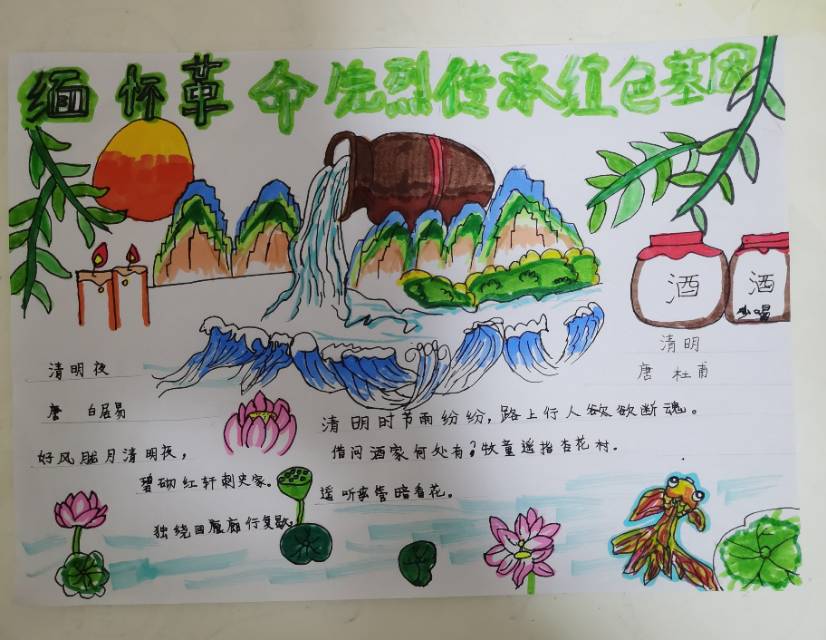 缅怀革命先烈传承红色墓因
酒
酒
少喝
清明
唐 杜甫
清明时节雨纷纷，路上行人欲欲断魂。
借问酒家何处有？牧童遥指杏花村.
清明夜
唐 白居易
好风胧月清明夜，
碧砌红轩刺史家。
独绕回廊行复歇，
遥听弦管暗看花。